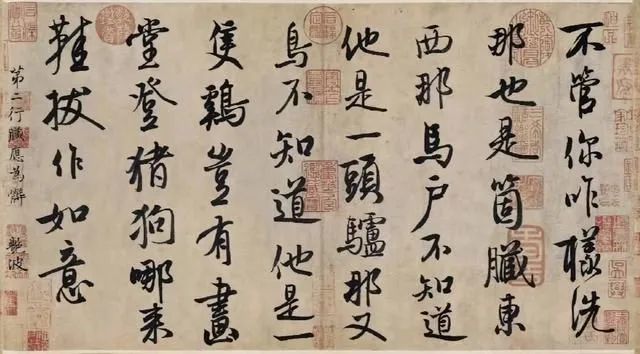 不管你咋樣洗
那也是箇臟東
西那馬户不知道
他是一頭驢那又
鳥不知道他是一
隻鷄豈有畫
堂登猪狗哪来
鞋拔作如意
第二行臟應為髒 艷波